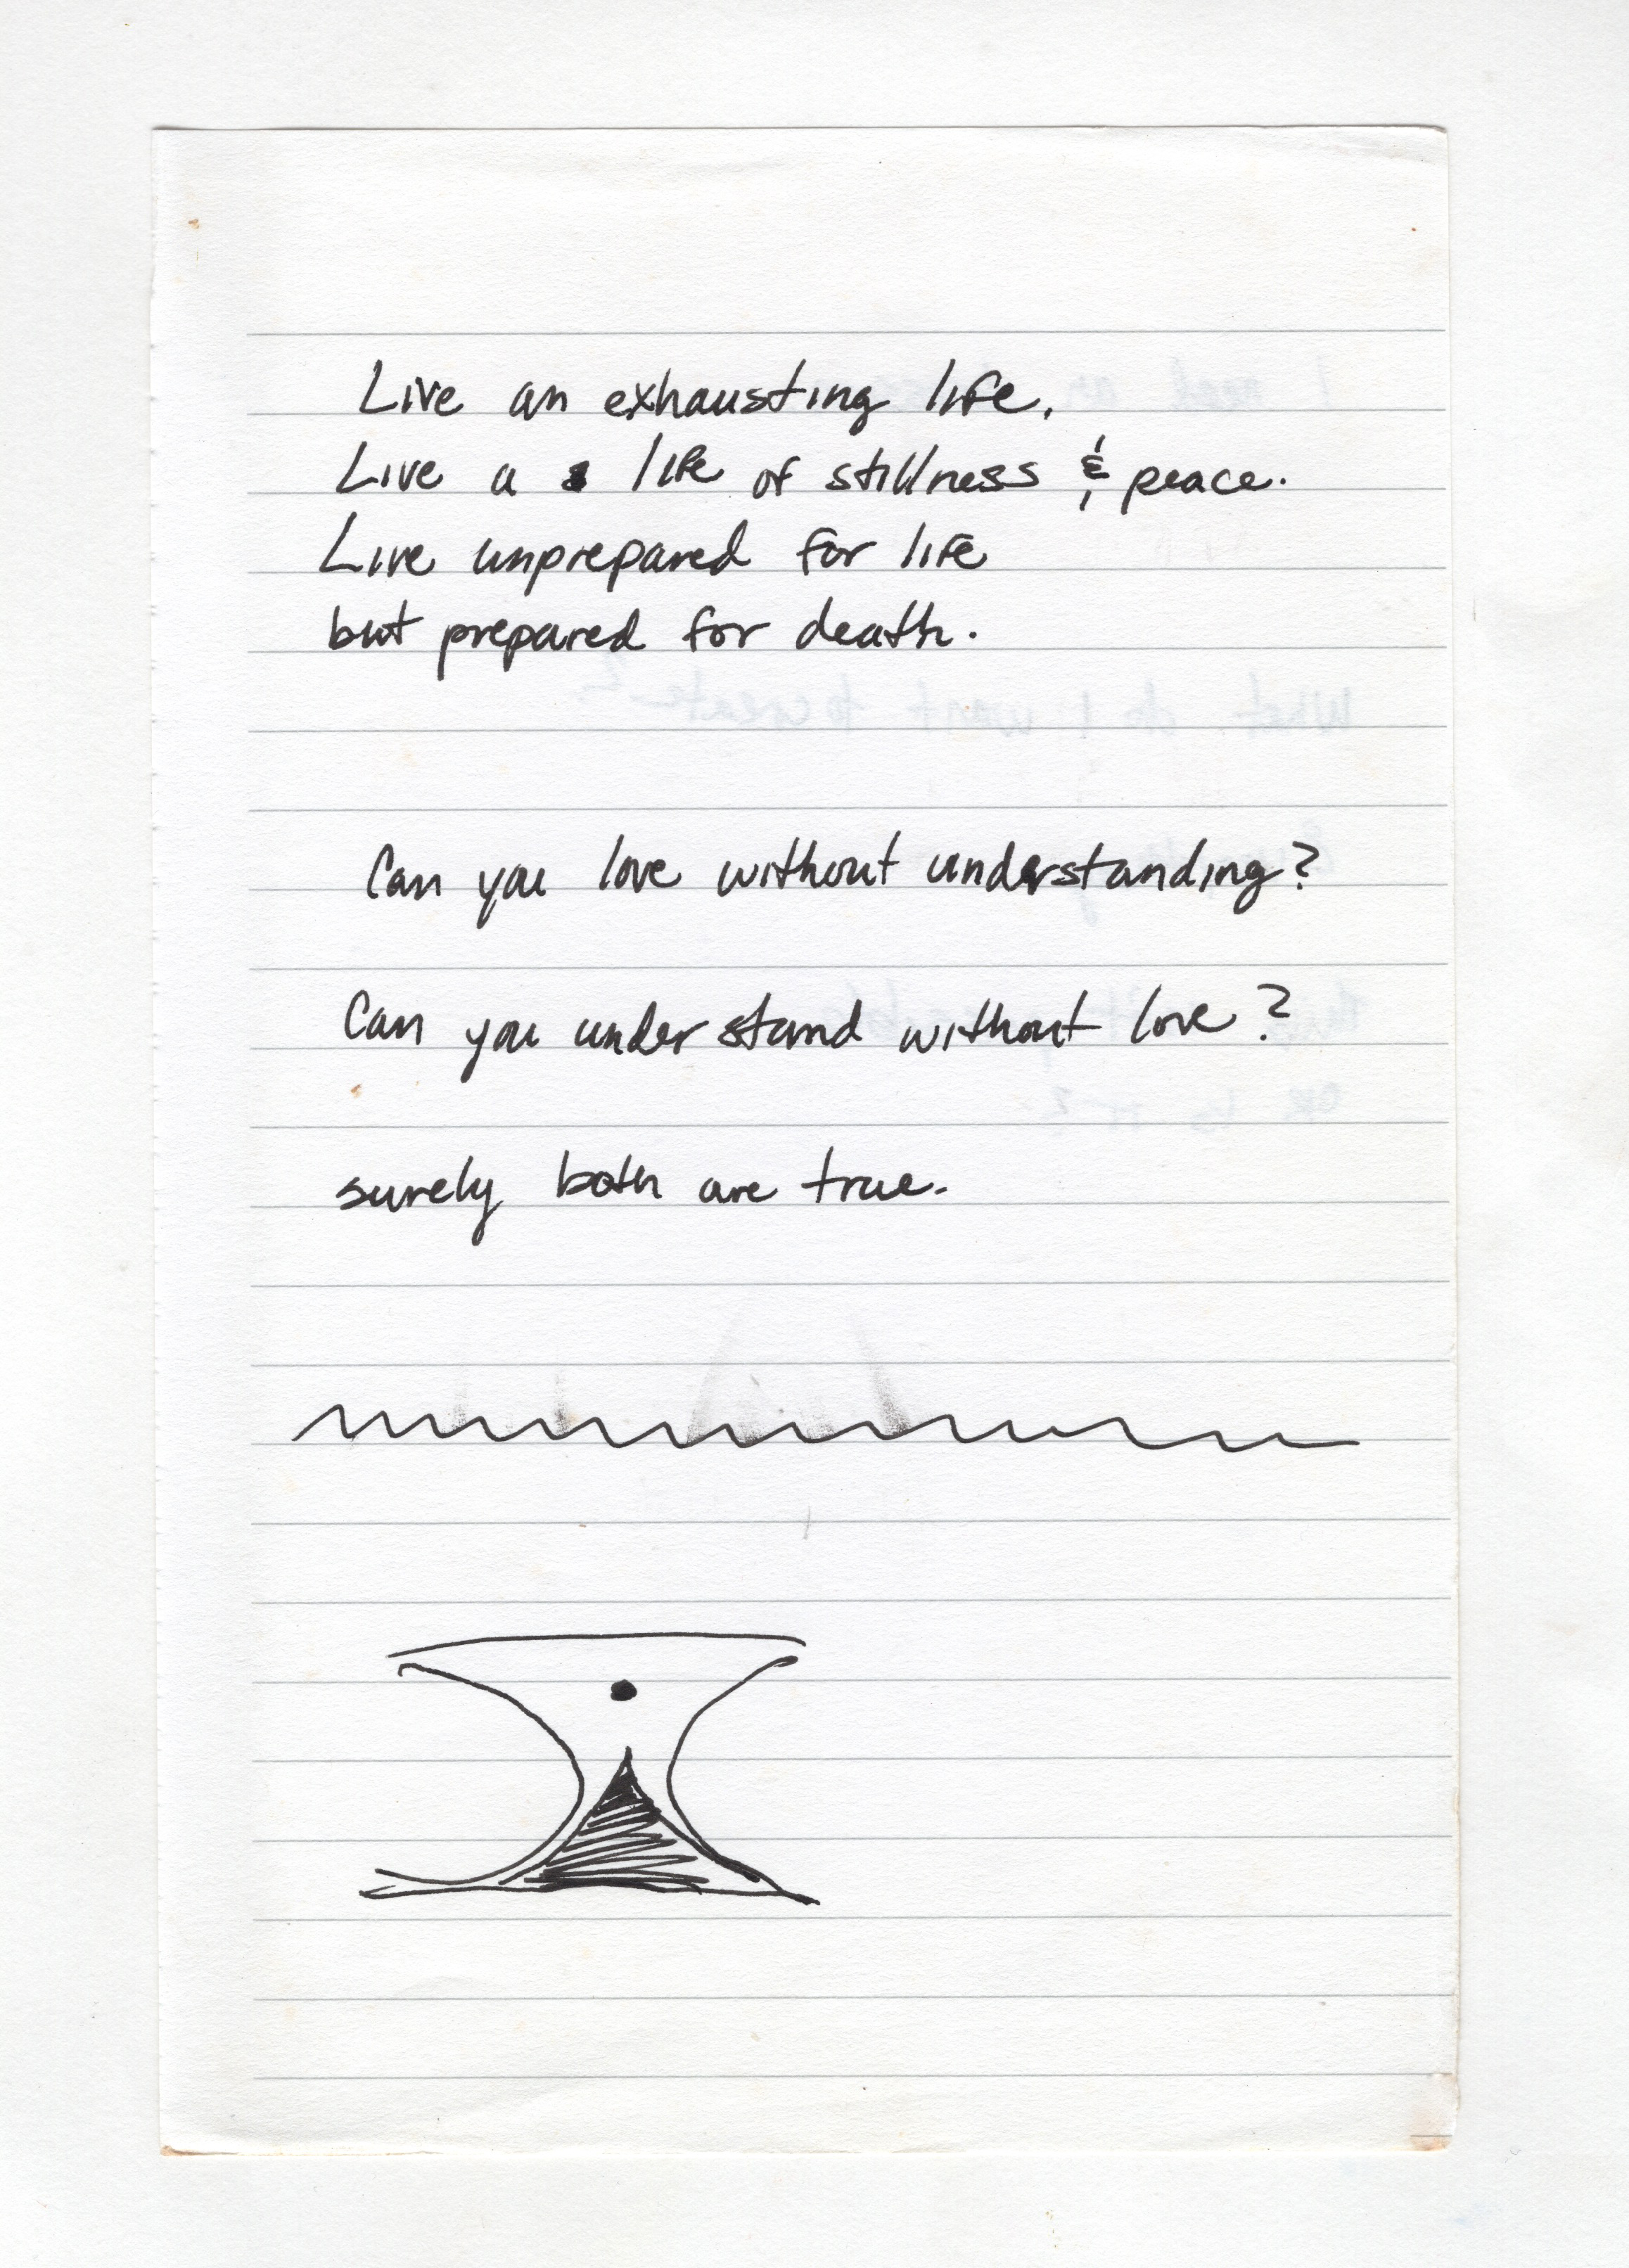 Live an exhausting life.
Live a life of stillness & peace.
Live unprepared for life
but prepared for death.
What do I want to create?
Can you love without understanding?
Can you understand without love?
surely both are true.